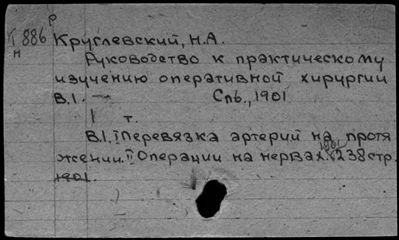 р
К 886 Круглевский, Н.А.
н
Руководство к практическому
изучению оперативной хирургии
В.1. — Спб., 1901
1 т.
В.1. I Перевязка артерий на протя
жении. II Операции на нервах. 1901 238 стр.
1901.